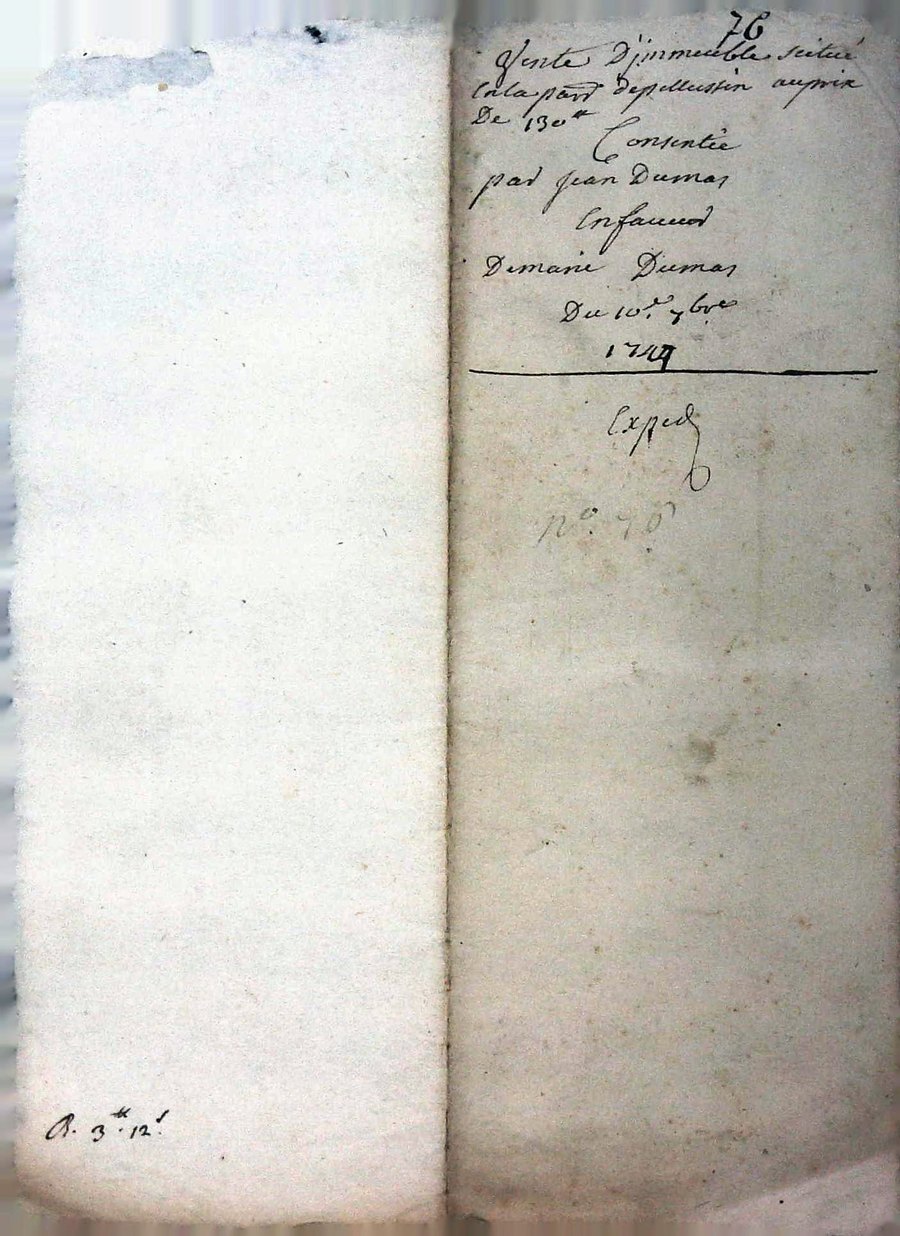 76
Vente D'jmmeuble scitué
En la parr depellussin au prix
De 130tt
Consentie
par jean Dumas
En faveur
De marie Dumas
Du 10e. 7bre
1747
Exped
no. 76
R. 3tt. 12s